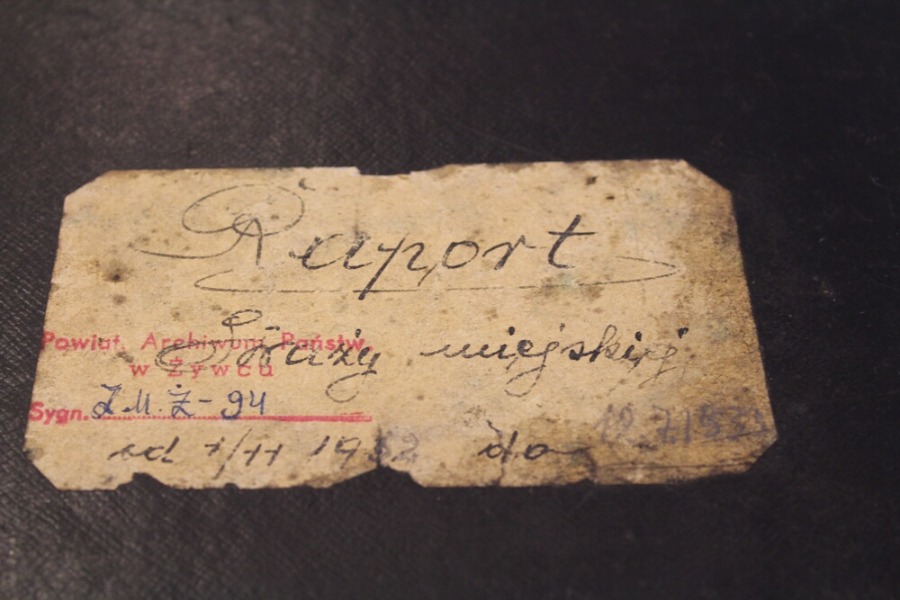 Raport
Straży miejskiej
Powiat. Archiwum Państw.
w Żywcu
Sygn. Z.M.Ż-94
od 1/11 19 do